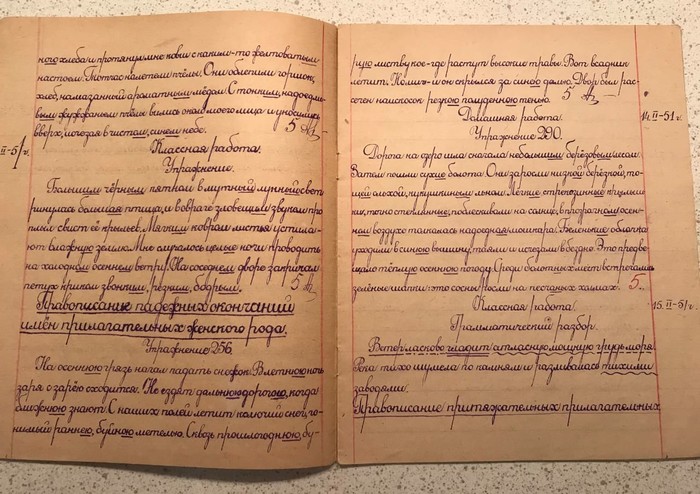 ного хлеба и протянул мне ковш с каким-то желтоватым
настоем. Тотчас налетели пчёлы. Они облепили горшок,
хлеб, намазанный ароматным мёдом. С тонким, надоедли-
вым жужжаньем пчёлы вились около моего лица и уносились
вверх, исчезая в чистом, синем небе. 5
II-51 г.
Классная работа.
Упражнение.
Большим чёрным пятном в мутный лунный свет
ринулась большая птица, и в овраге зловещим звуком про
шёл свист её крыльев. Мягким ковром листья устила-
ют влажную землю. Мне случалось целые ночи проводить
на холодном осеннем ветру. На соседнем дворе закричал
петух криком звонким, резким, бодрым. 5
Правописание падежных окончаний
имён прилагательных женского рода.
Упражнение 256.
На осеннюю грязь начал падать снежок. В летнюю ночь
заря с зарёю сходится. Не ездят дальнюю дорогою, когда
ближнюю знают. С наших полей летит колючий снег, го-
нимый раннею, буйною метелью. Сквозь прошлогоднюю, бу-
рую листву кое-где растут высокие травы. Вот всадник
летит. Холм - и он скрылся за синею далью. Двор был рас-
сечен наискосок резкою полуденною тенью. 5
14. II-51 г.
Домашняя работа.
Упражнение 290.
Дорога на ферму шла сначала небольшим берёзовым лесом.
Затем пошли сухие болота. Они заросли низкой берёзкой, то-
щей ольхой, кукушкиным льном. Лёгкие стрекозиные крылыш-
ки, точно стеклянные, поблёскивали на солнце, в прозрачном осен-
нем воздухе толкалась надоедная мошкара. Беленькие облачка
уходили в синюю вышину, таяли и исчезали в бездне. Это предве-
щало тёплую осеннюю погоду. Среди болотных мест встречались
зелёные шапки: это сосны росли на песчаных холмах. 5
15. II-51 г.
Классная работа.
Грамматический разбор.
Ветер ласково гладит атласную мощную грудь моря.
Река тихо шумела по камням и разливалась тихими
заводями.
Правописание притяжательных прилагательных